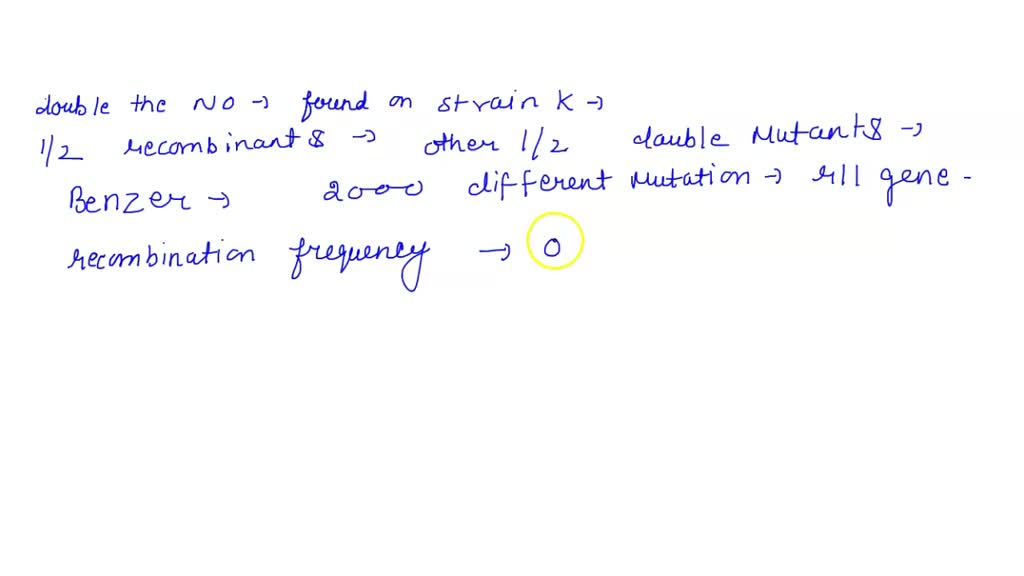 double the NO → found on strain K →
1/2 recombinants → other 1/2 double Mutants →
Benzer → 2000 different Mutation → rII gene -
recombination frequency → 0